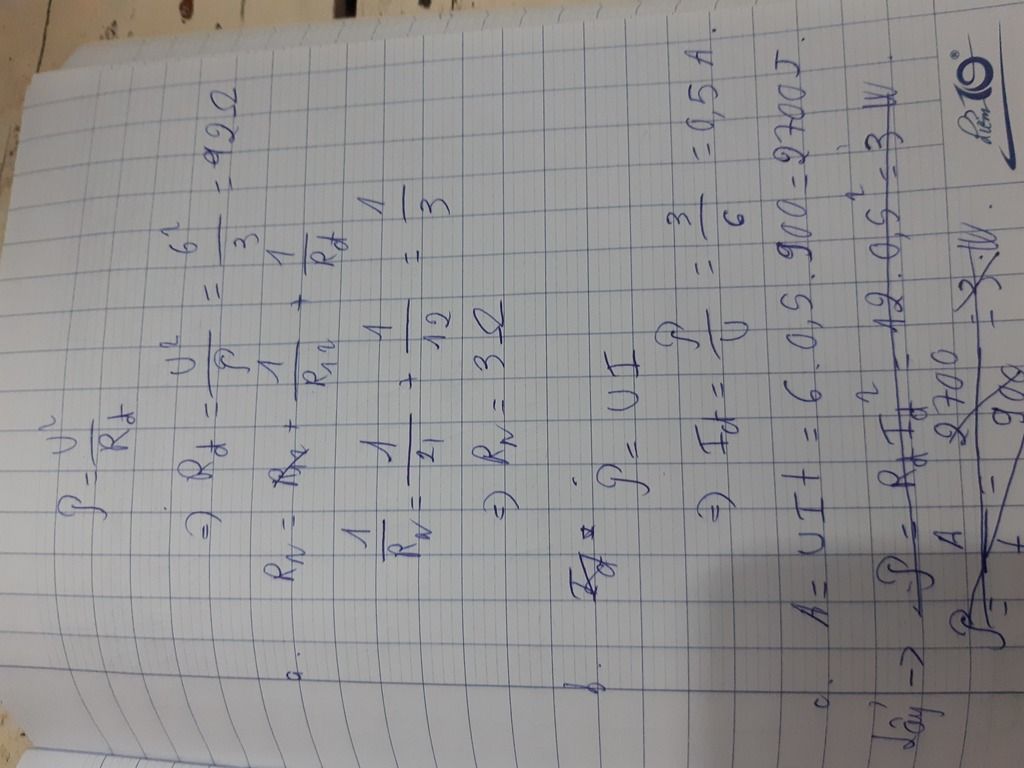 P = U²/R_đ
=> R_đ = U²/P = 6²/3 = 12Ω
a. R_N = 1/R₁₂ + 1/R_đ
1/R_N = 1/4 + 1/12 = 1/3
=> R_N = 3Ω
b. I_đ =
P = UI
=> I_đ = P/U = 3/6 = 0,5 A.
c. A = UIt = 6.0,5.900 = 2700J.
lấy -> P = R_đ I_đ² = 12.0,5² = 3 W
P = A/t = 2700/900 = 3 W.
Điểm 10